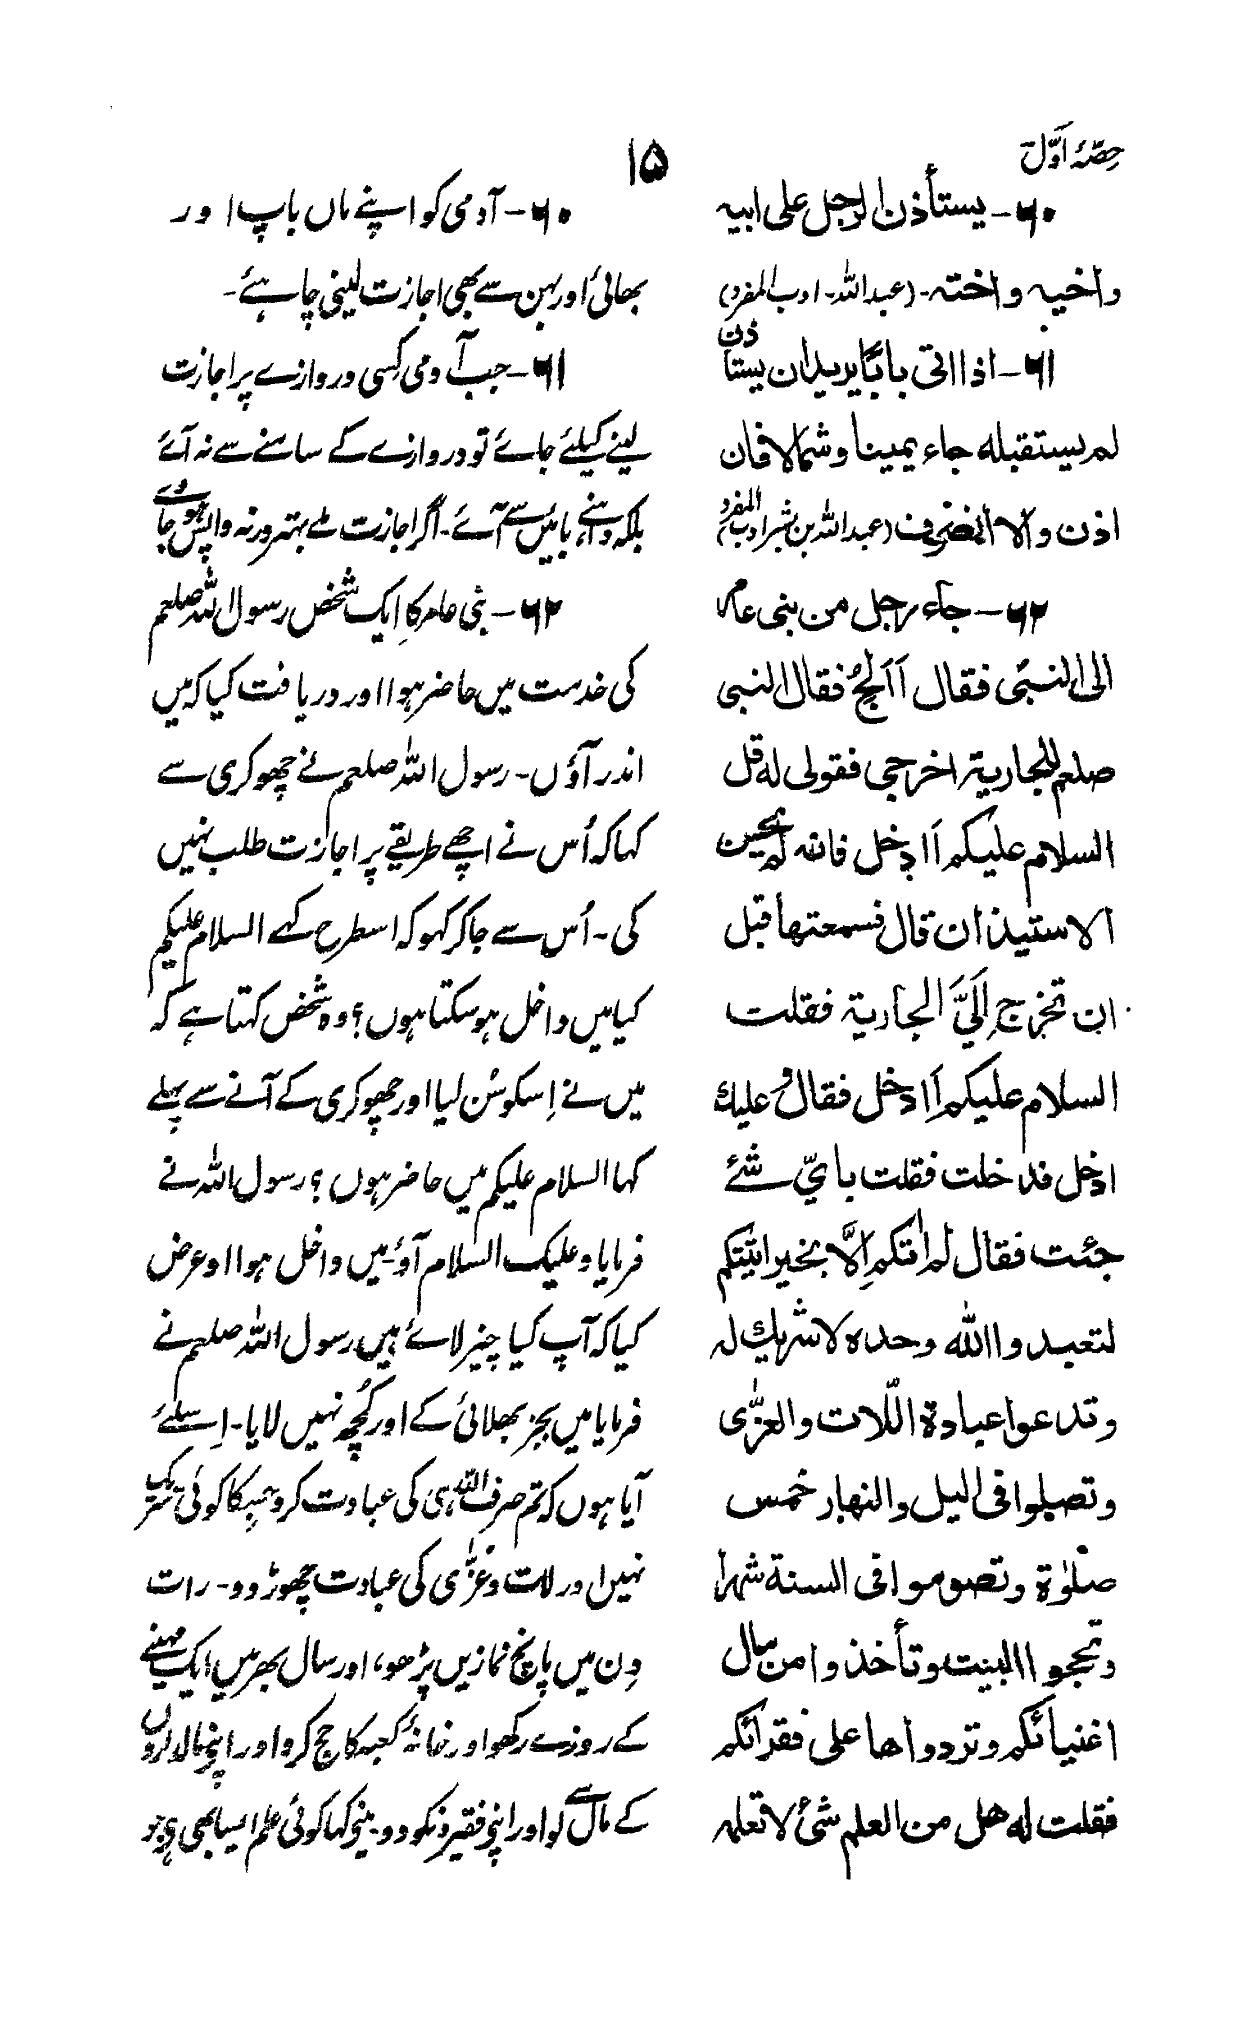 حصّۂ اوّل
۱۵
۶۰ - یستأذن الرجل علی ابیہ
واخیہ واختہ - (عبداللہ - ادب المفرد)
۶۱ - اذا اتی باباً یرید ان یستأذن
لم یستقبلہ جاء یمینا وشمالا فان
اذن والا انصرف (عبداللہ بن بشر ادب المفرد)
۶۲ - جاء رجل من بنی عامر
الی النبی فقال أألج فقال النبی
صلعم للجاریة اخرجی فقولی له قل
السلام علیکم أادخل فانه لم یحسن
الاستیذان قال فسمعتها قبل
ان تخرج اِلَیَّ الجاریة فقلت
السلام علیکم أادخل فقال وعلیك
ادخل فدخلت فقلت بایّ شئے
جئت فقال لم اٰتکم اِلّا بخیر اتیتکم
لتعبدوا اللہ وحدہ لا شریك له
وتدعوا عبادة اللّات والعزّٰی
وتصلوا فی الیل والنهار خمس
صلوٰة وتصوموا فی السنة شهرا
وتحجوا البیت وتأخذوا من مال
اغنیائکم وتردواها علی فقرائکم
فقلت له هل من العلم شئ لا تعلمہ
۶۰ - آدمی کو اپنے ماں باپ اور
بھائی اور بہن سے بھی اجازت لینی چاہئے -
۶۱ - جب آدمی کسی دروازے پر اجازت
لینے کیلئے جائے تو دروازے کے سامنے سے نہ آئے
بلکہ دہنے، بائیں سے آئے - اگر اجازت ملے بہتر ورنہ واپس ہو جاوے
۶۲ - بنی عامر کا ایک شخص رسول اللہ صلعم
کی خدمت میں حاضر ہوا اور دریافت کیا کہ میں
اندر آؤں - رسول اللہ صلعم نے چھوکری سے
کہا کہ اُس نے اچھے طریقے پر اجازت طلب نہیں
کی - اُس سے جا کر کہو کہ اسطرح کہے السلام علیکم
کیا میں داخل ہو سکتا ہوں؟ وہ شخص کہتا ہے کہ
میں نے اِسکو سُن لیا اور چھوکری کے آنے سے پہلے
کہا السلام علیکم میں حاضر ہوں؟ رسول اللہ نے
فرمایا وعلیک السلام آؤ - میں داخل ہوا اور عرض
کیا کہ آپ کیا چیز لائے ہیں رسول اللہ صلعم نے
فرمایا میں بجز بھلائی کے اور کُچھ نہیں لایا - اِسلئے
آیا ہوں کہ تم صرف اللہ ہی کی عبادت کرو جسکا کوئی شریک
نہیں اور لات وعُزّٰی کی عبادت چھوڑ دو - رات
دِن میں پانچ نمازیں پڑھو، اور سال بھر میں ایک مہینے
کے روزے رکھو اور خانۂ کعبہ کا حج کرو اور اپنے مالداروں
کے مال سے لو اور اپنے فقیروں کو دو - مینے کہا کوئی علم ایسا بھی ہے جو